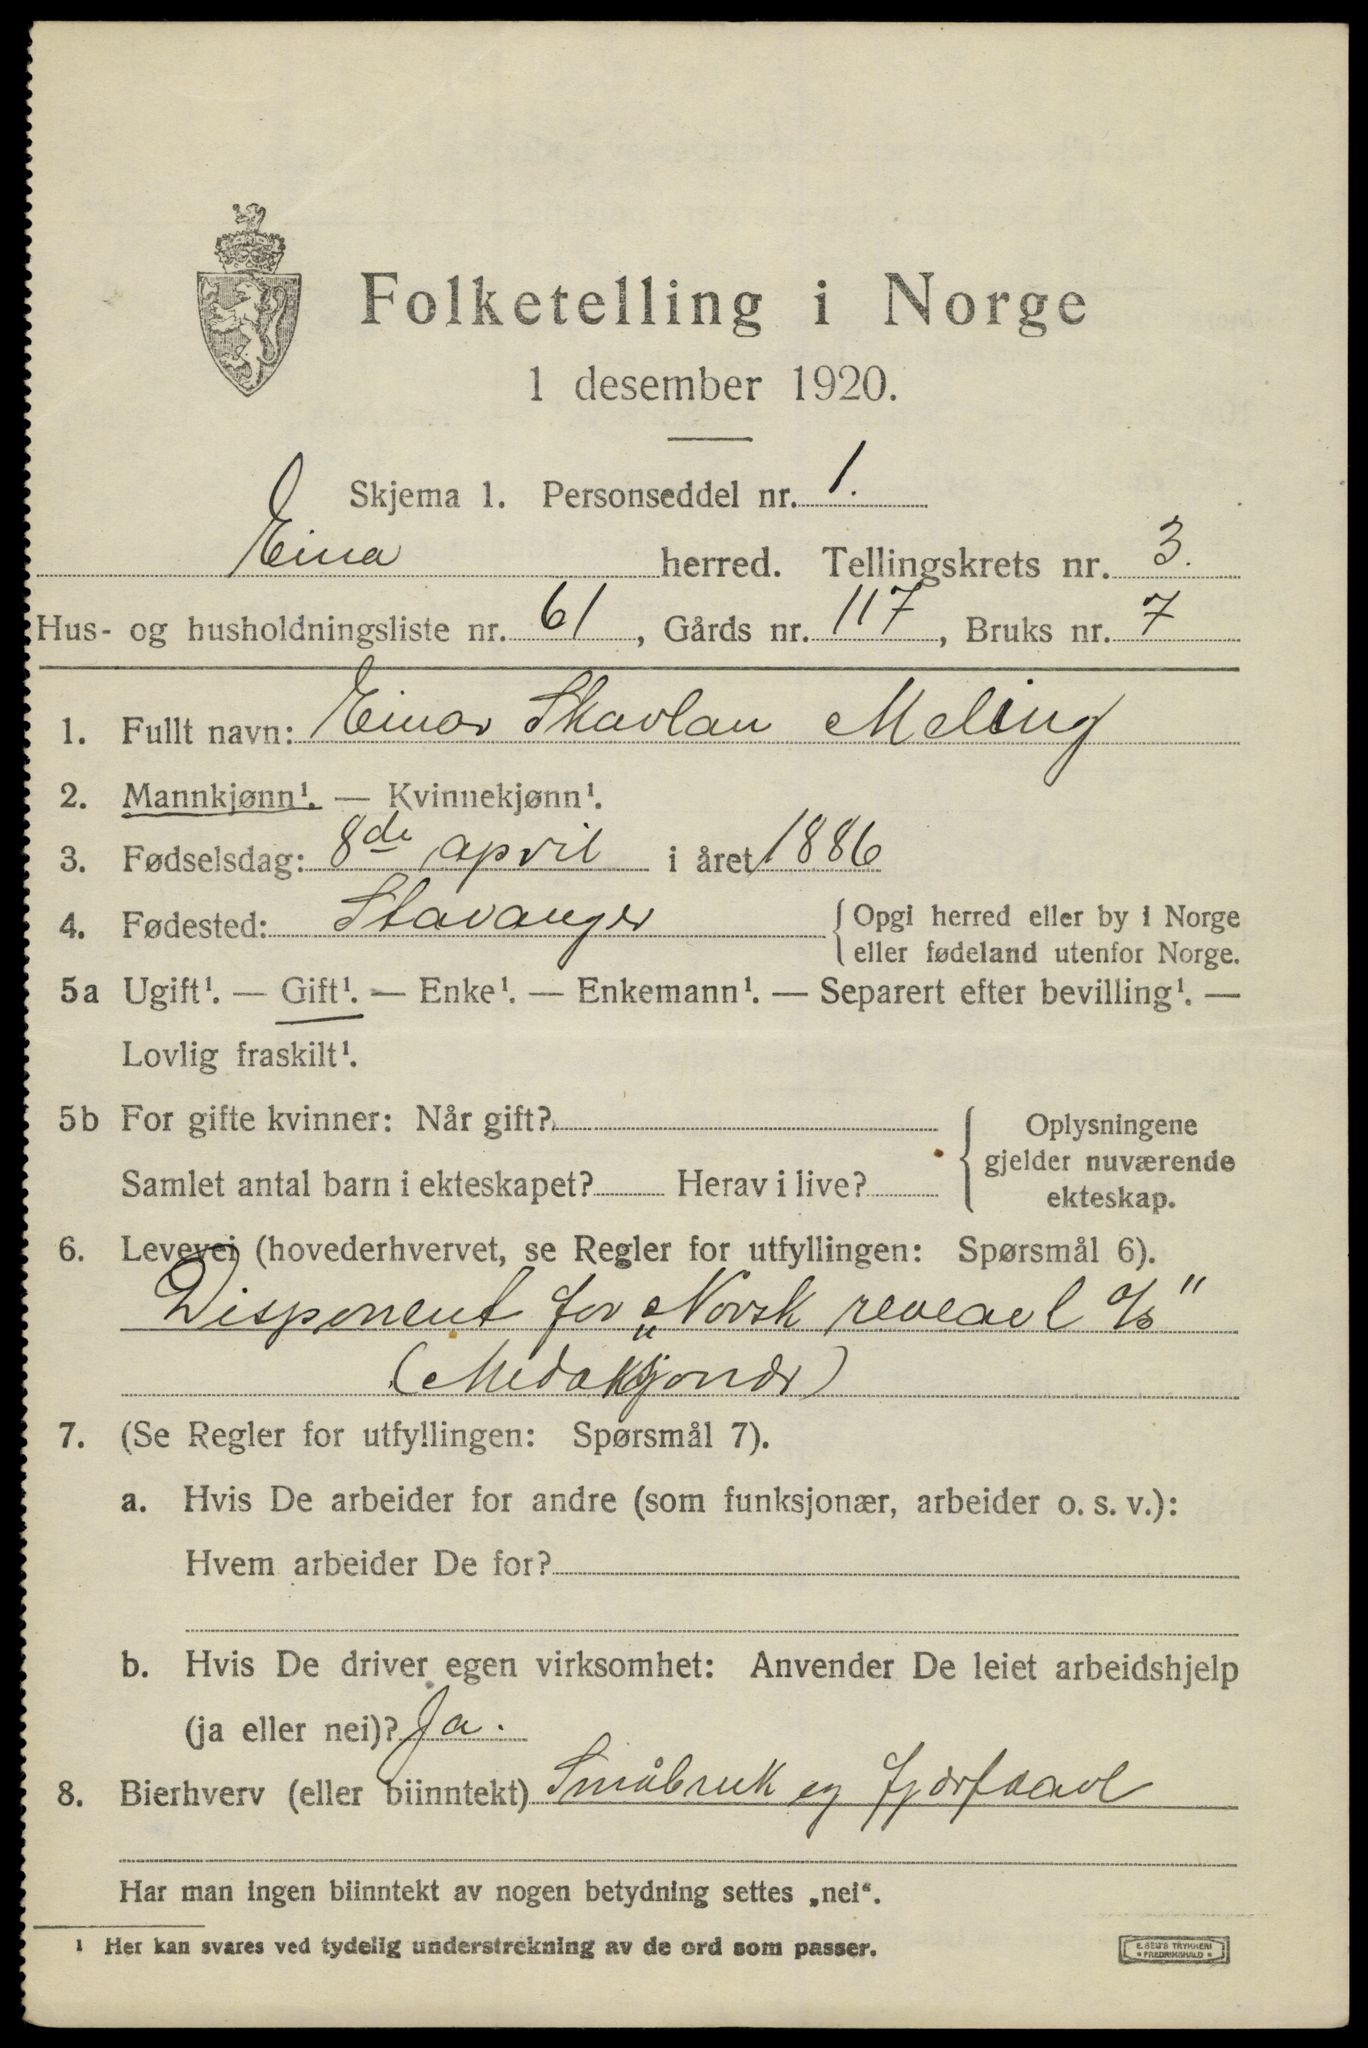 Folketelling i Norge
1 desember 1920.
Skjema 1. Personseddel nr. 1.
Eina herred. Tellingskrets nr. 3.
Hus- og husholdningsliste nr. 61, Gårds nr. 117, Bruks nr. 7
1. Fullt navn: Einar Skavlan Meling
2. Mannkjønn¹. — Kvinnekjønn¹.
3. Fødselsdag: 8de april i året 1886
4. Fødested: Stavanger {Opgi herred eller by i Norge
eller fødeland utenfor Norge.
5a Ugift¹. — Gift¹. — Enke¹. — Enkemann¹. — Separert efter bevilling¹. —
Lovlig fraskilt¹.
5b For gifte kvinner: Når gift?
Samlet antal barn i ekteskapet? Herav i live?
Oplysningene
gjelder nuværende
ekteskap.
6. Levevei (hovederhvervet, se Regler for utfyllingen: Spørsmål 6).
Disponent for „Norsk reveavl a/s"
(Medaksjonær)
7. (Se Regler for utfyllingen: Spørsmål 7).
a. Hvis De arbeider for andre (som funksjonær, arbeider o. s. v.):
Hvem arbeider De for?
b. Hvis De driver egen virksomhet: Anvender De leiet arbeidshjelp
(ja eller nei)? Ja.
8. Bierhverv (eller biinntekt) Småbruk og fjærfæavl
Har man ingen biinntekt av nogen betydning settes „nei“.
¹ Her kan svares ved tydelig understrekning av de ord som passer.
E. SEM'S TRYKKERI
• FREDRIKSHALD •